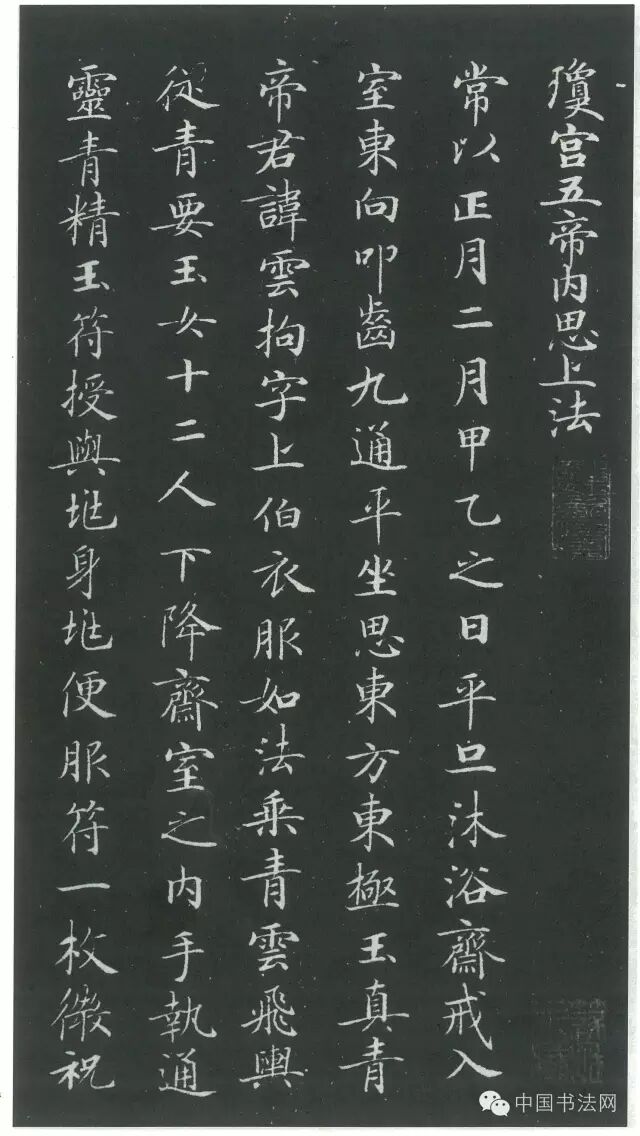 瓊宮五帝內思上法
常以正月二月甲乙之日平旦沐浴齋戒入
室東向叩齒九通平坐思東方東極玉真青
帝君諱雲拘字上伯衣服如法乘青雲飛輿
從青要玉女十二人下降齋室之內手執通
靈青精玉符授與地身地便服符一枚微祝
中国书法网